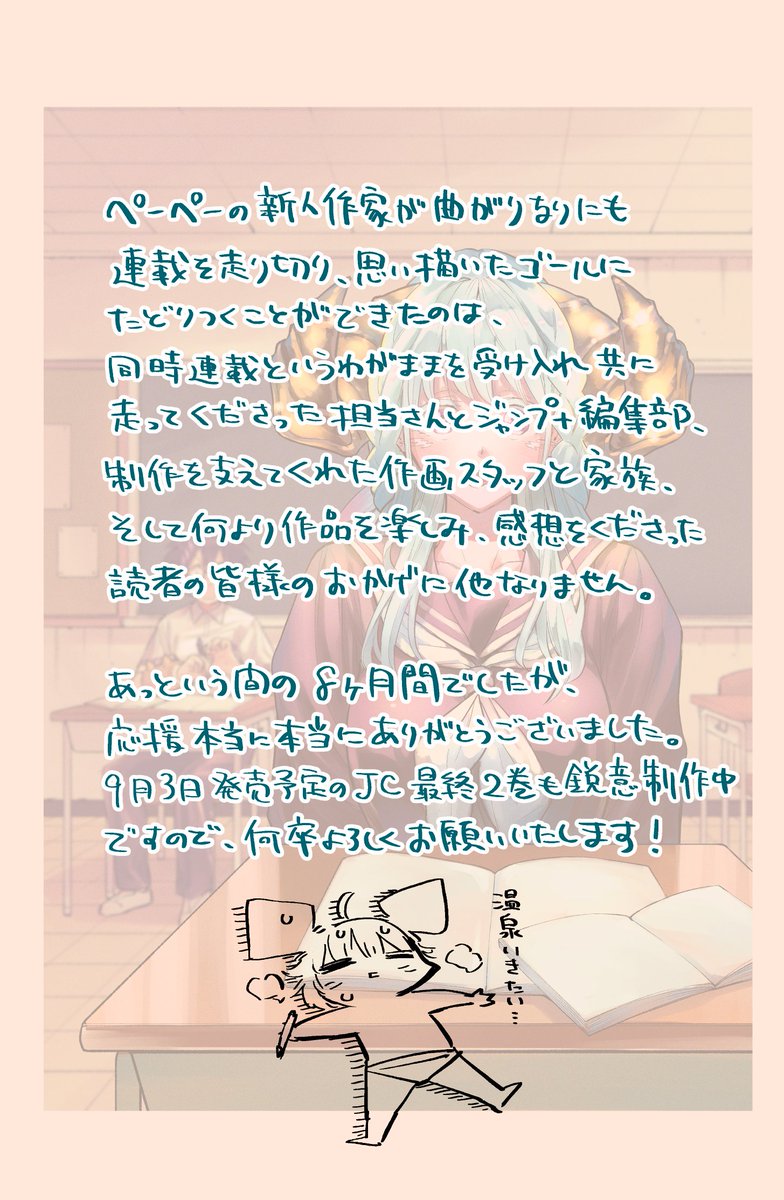 ペーペーの新人作家が曲がりなりにも
連載を走り切り、思い描いたゴールに
たどりつくことができたのは、
同時連載というわがままを受け入れ共に
走ってくださった担当さんとジャンプ+編集部、
制作を支えてくれた作画スタッフと家族、
そして何より作品を楽しみ、感想をくださった
読者の皆様のおかげに他なりません。
あっという間の8ヶ月間でしたが、
応援本当に本当にありがとうございました。
9月3日発売予定のJC最終2巻も鋭意制作中
ですので、何卒よろしくお願いいたします!
温泉いきたい…